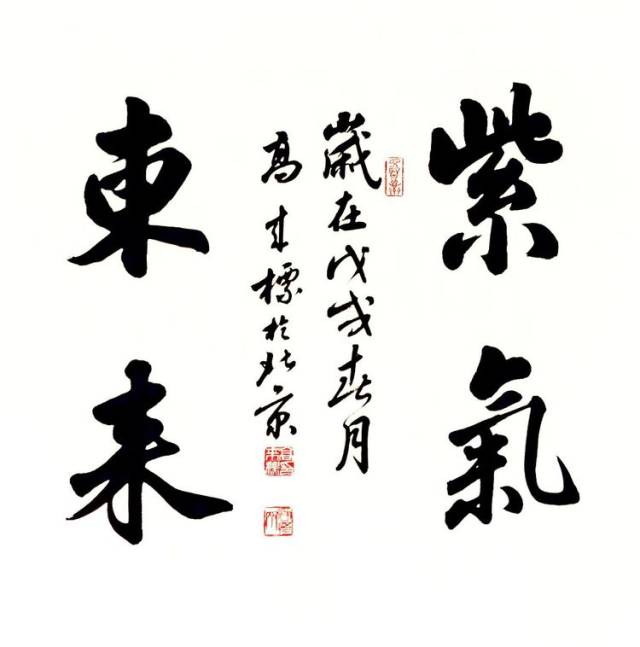 紫氣
東来
歲在戊戌春月
高標於北京